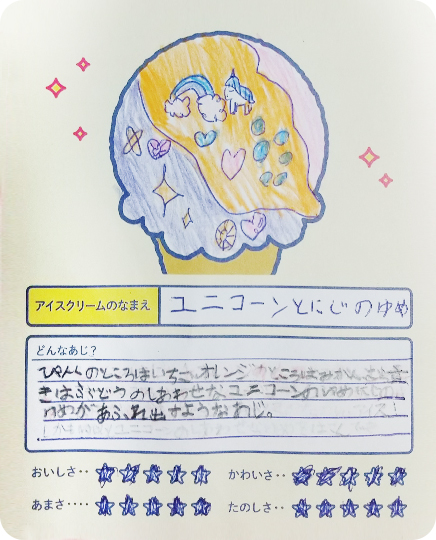 アイスクリームのなまえ
ユニコーンとにじのゆめ
どんなあじ？
ぴんくのところはいちご、オレンジのところはみかん、むらさ
きはぶどうのしあわせなユニコーンの
ゆめがあふれ出すようなあじ。
おいしさ‥
かわいさ‥
あまさ‥‥
たのしさ‥